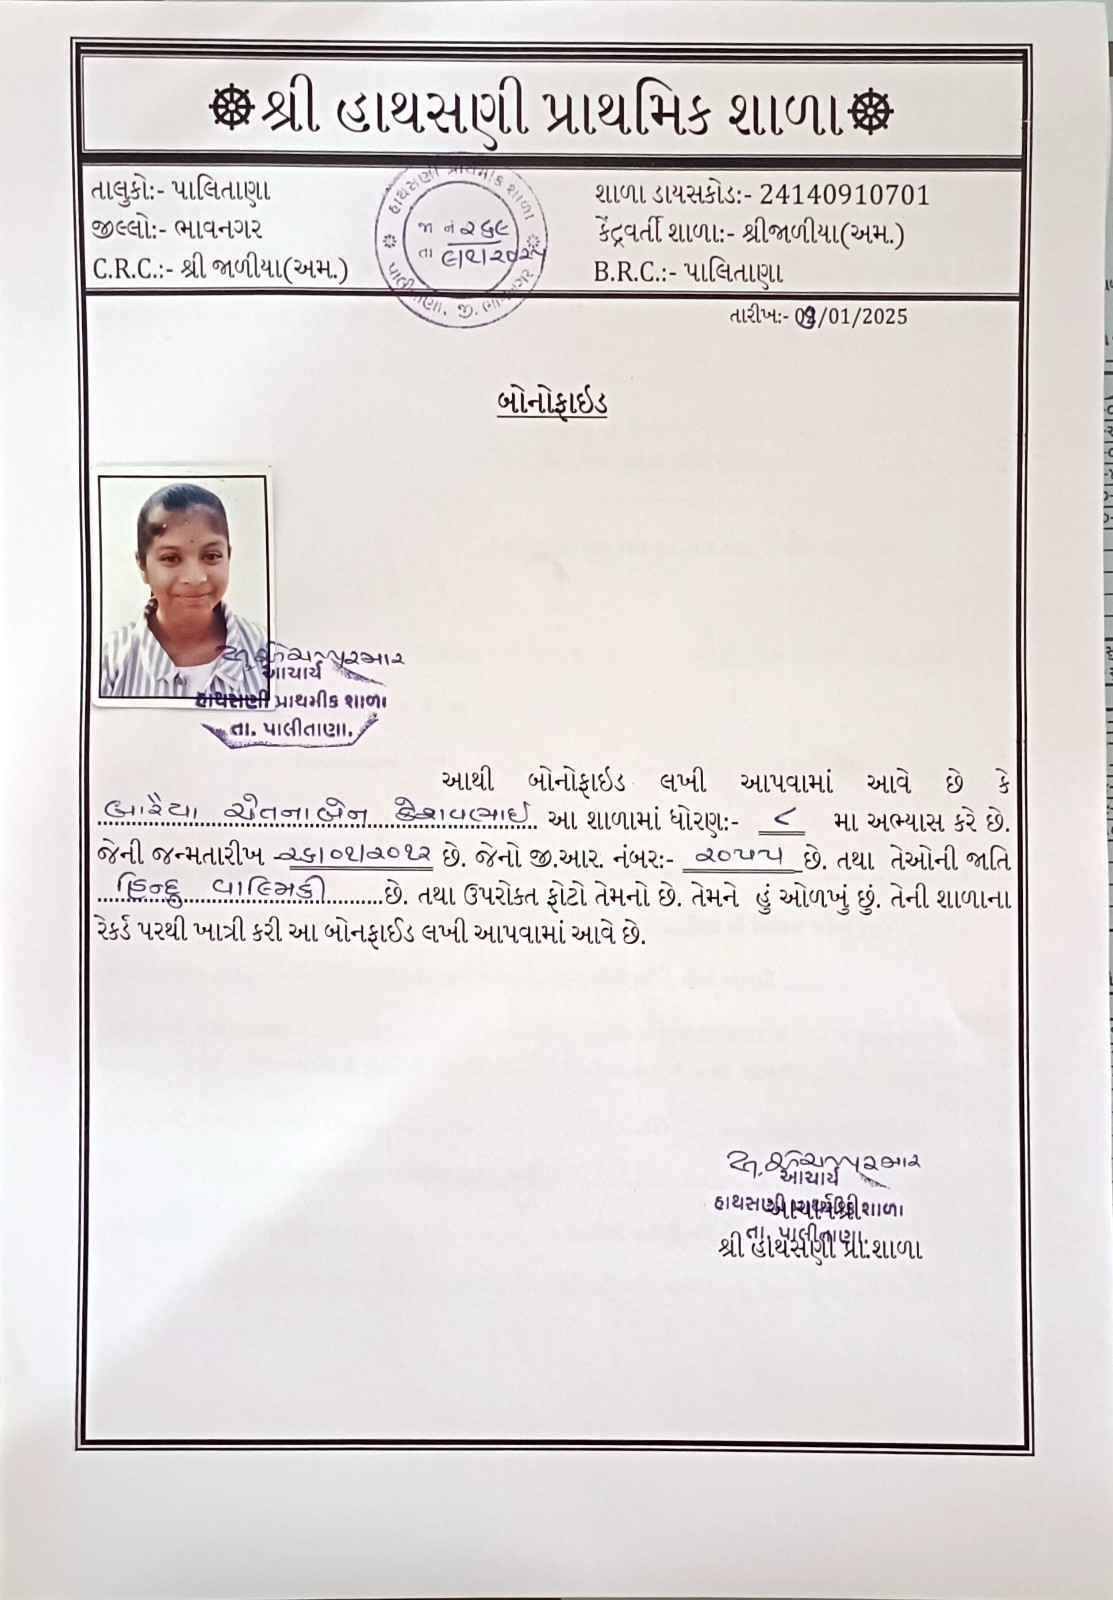 શ્રી હાથસણી પ્રાથમિક શાળા
તાલુકો:- પાલિતાણા
જીલ્લો:- ભાવનગર
C.R.C.:- શ્રી જાળીયા(અમ.)
હાથસણી પ્રાથમીક શાળા
જા નં ૨૬૯
તા ૯/૧/૨૦૨૫
પાલીતાણા. જી. ભાવનગર
શાળા ડાયસકોડ:- 24140910701
કેંદ્રવર્તી શાળા:- શ્રીજાળીયા(અમ.)
B.R.C.:- પાલિતાણા
તારીખ:- 09/01/2025
બોનોફાઇડ
આચાર્ય
હાથસણી પ્રાથમીક શાળા
તા. પાલીતાણા.
આથી બોનોફાઇડ લખી આપવામાં આવે છે કે
બારૈયા ચેતનાબેન કેશવભાઈ આ શાળામાં ધોરણ:- ૮ મા અભ્યાસ કરે છે.
જેની જન્મતારીખ ૨૮/૦૧/૨૦૧૨ છે. જેનો જી.આર. નંબર:- ૨૦૫૫ છે. તથા તેઓની જાતિ
હિન્દુ વાલ્મિકી છે. તથા ઉપરોક્ત ફોટો તેમનો છે. તેમને હું ઓળખું છું. તેની શાળાના
રેકર્ડ પરથી ખાત્રી કરી આ બોનફાઈડ લખી આપવામાં આવે છે.
આચાર્ય
હાથસણી પ્રાથમીક શાળા
આચાર્યશ્રી
તા. પાલીતાણા.
શ્રી હાથસણી પ્રા.શાળા